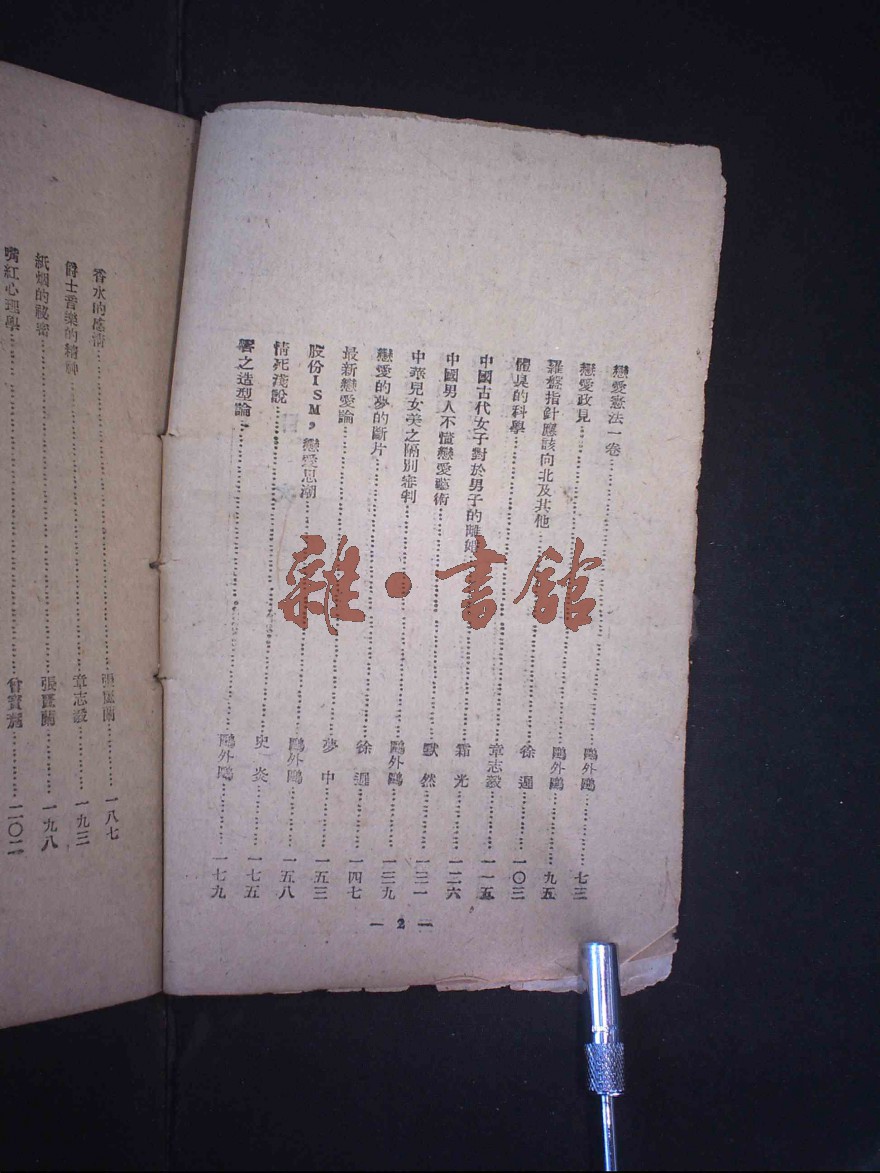 戀愛憲法一卷……鷗外鷗……七三
戀愛政見……鷗外鷗……九五
羅盤指針應該向北及其他……徐遲……一〇三
體臭的科學……章志毅……一一五
中國古代女子對於男子的雕……霜光……一二六
中國男人不懂戀愛藝術……默然……一三一
中華兒女美之隔別審判……鷗外鷗……一三九
戀愛的夢的斷片……徐遲……一四七
最新戀愛論……夢中……一五三
股份ISM，戀愛思潮……鷗外鷗……一五八
情死淺說……史炎……一七五
之造型論……鷗外鷗……一七九
— 2 —
香水的感情……張……一八七
爵士音樂的精神……章志毅……一九三
紙烟的秘密……張……一九八
嘴紅心理學……曾寶……二〇二
雜·書館